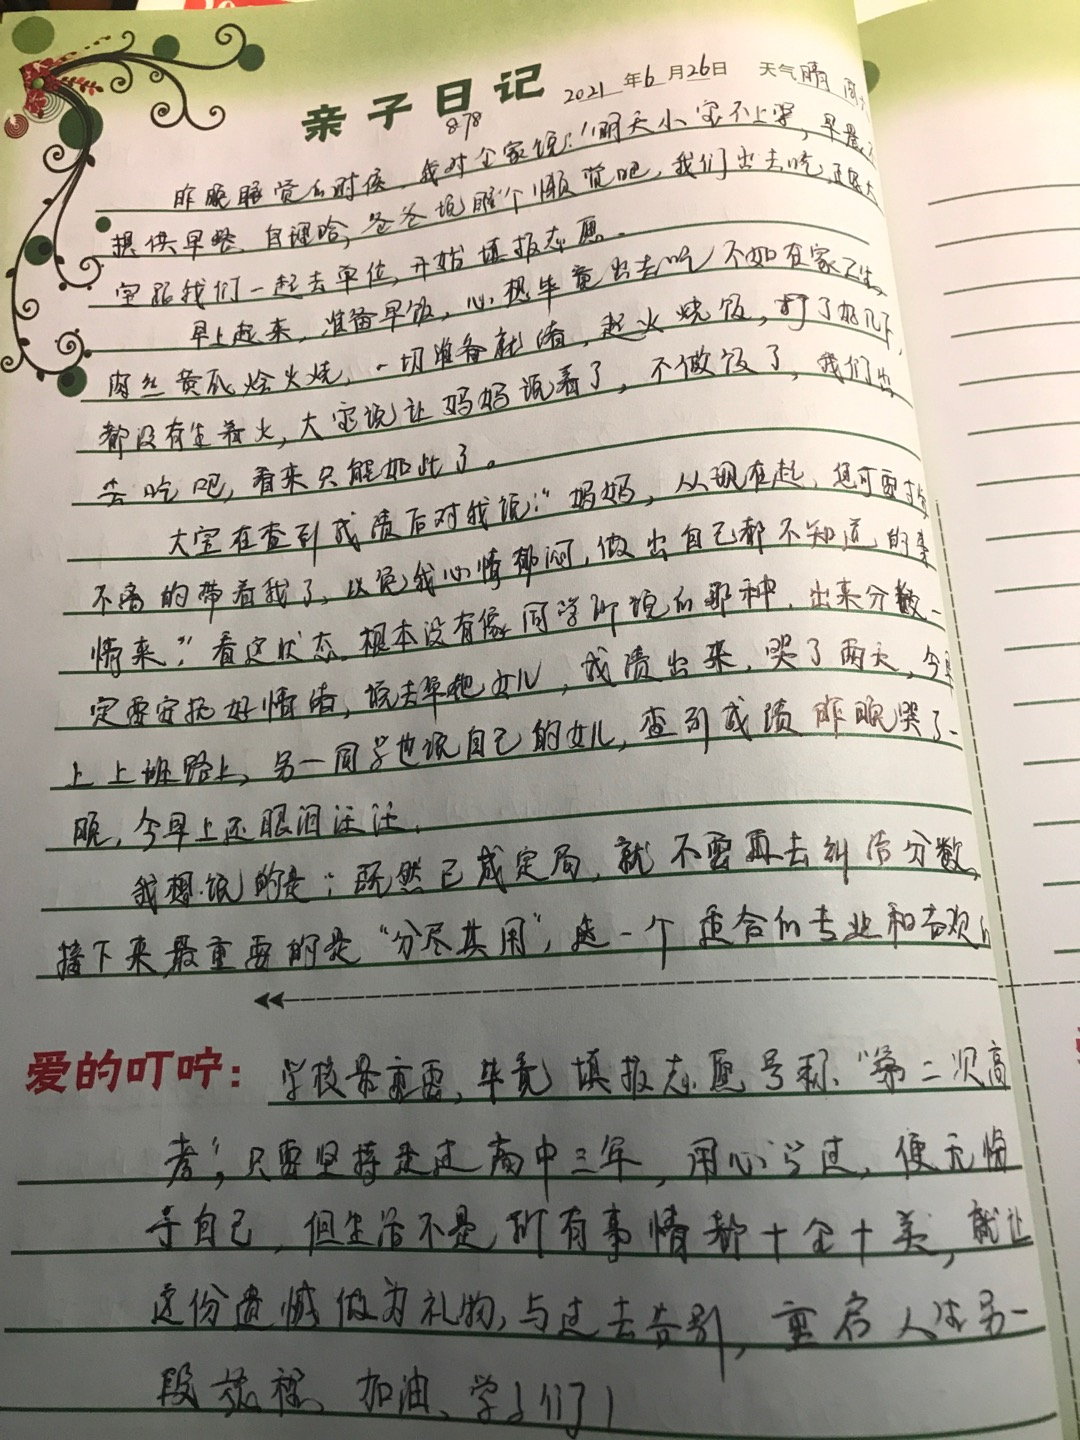 亲子日记 2021年6月26日 天气晴
878
昨晚睡觉的时候,我对全家说:"明天小宝不上学,早晨不
提供早餐,自理哈,爸爸说睡个懒觉吧,我们出去吃,正好大
宝跟我们一起去单位,开始填报志愿。
早上起来,准备早饭,心想毕竟出去吃不如在家卫生,
肉丝黄瓜烩火烧,一切准备就绪,起火烧饭,打了好几下,
都没有生着火,大宝说让妈妈说着了,不做饭了,我们出
去吃吧,看来只能如此了。
大宝在查到成绩后对我说:"妈妈,从现在起,您可要寸步
不离的带着我了,以免我心情郁闷,做出自己都不知道的事
情来"。看这状态,根本没有像同学所说的那种,出来分数一
定要安抚好情绪,说去年她女儿,成绩出来,哭了两天,今早
上上班路上,另一同学也说自己的女儿,查到成绩昨晚哭了一
晚,今早上还眼泪汪汪。
我想说的是:既然已成定局,就不要再去纠结分数,
接下来最重要的是"分尽其用",选一个适合的专业和喜欢的
爱的叮咛: 学校最重要,毕竟填报志愿号称"第二次高
考",只要坚持走过高中三年,用心学过,便无悔
于自己,但生活不是所有事情都十全十美,就让
这份遗憾做为礼物,与过去告别,重启人生另一
段旅程,加油,学子们!